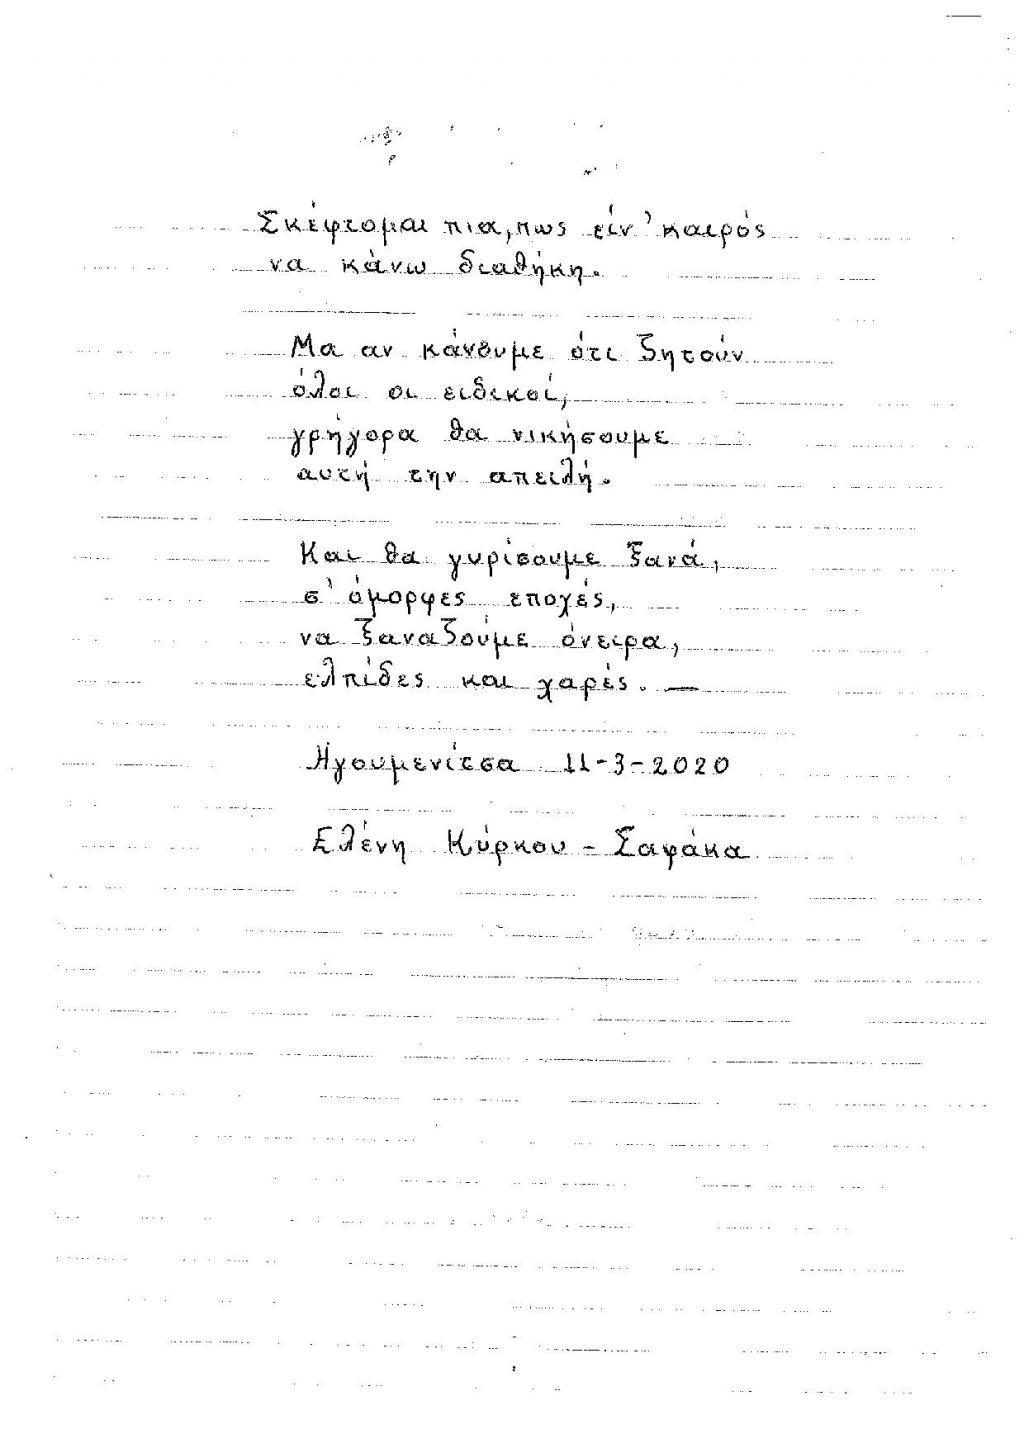 Σκέφτομαι πια, πως είν' καιρός
να κάνω διαθήκη.
Μα αν κάνουμε ότι ζητούν
όλοι οι ειδικοί,
γρήγορα θα νικήσουμε
αυτή την απειλή.
Και θα γυρίσουμε ξανά,
σ' όμορφες εποχές,
να ξαναζούμε όνειρα,
ελπίδες και χαρές. —
Ηγουμενίτσα 11-3-2020
Ελένη Κύρκου - Σαφάκα